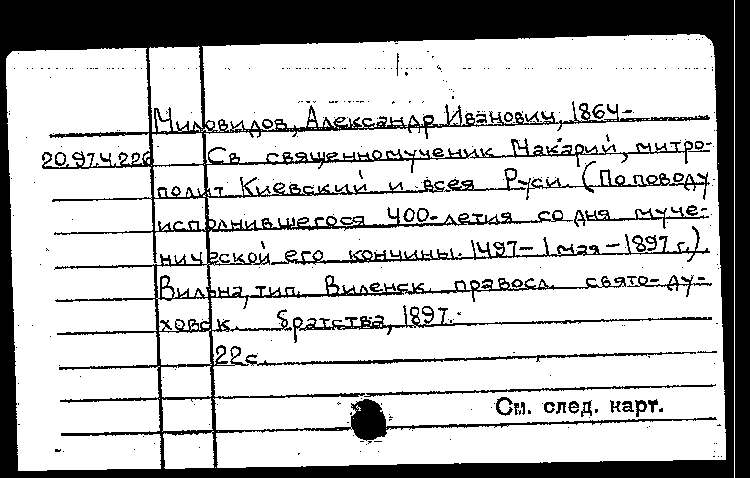 1.
Миловидов, Александр Иванович, 1864-
20.97.4.226 Св священномученик Макарий, митро-
полит Киевский и всея Руси. (По поводу
исполнившегося 400-летия со дня муче-
нической его кончины. 1497- 1 мая - 1897 г.).
Вильна, тип. Виленск. правосл. свято-ду-
ховск. братства, 1897.
22 с.
См. след. карт.